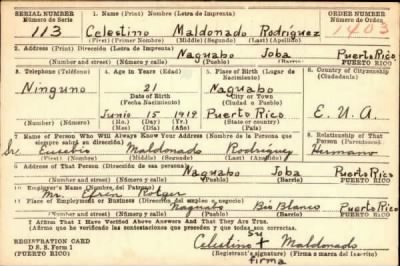 SERIAL NUMBER 1. Name (Print) Nombre (Letra de Imprenta) ORDER NUMBER
Número de Serie Número de Orden
113 Celestino Maldonado Rodríguez 1403
(First) (Primer Nombre) (Middle) (Segundo) (Last) (Apellido)
2. Address (Print) Dirección (Letra de Imprenta)
Naguabo Joba Puerto Rico
(Number and street) (Número y calle) (Town) (Pueblo) (Barrio) PUERTO RICO
3. Telephone (Teléfono) 4. Age in Years (Edad) 5. Place of Birth (Lugar de Nacimiento) 6. Country of Citizenship (Ciudadanía)
Ninguno 21 Naguabo
Date of Birth City or Town
(Fecha Nacimiento) (Ciudad o Pueblo)
Junio 15 1919 Puerto Rico E. U. A.
(Mo.) (Day) (Yr.) State or country
(Número) (Mes) (Día) (Año) (Estado o país)
7. Name of Person Who Will Always Know Your Address (Nombre de la Persona que siempre sabrá su dirección) 8. Relationship of That Person (Parentesco)
Sr. Eusebio Maldonado Rodríguez Hermano
(First) (Número) (Middle) (Segundo) (Last) (Apellido)
9. Address of That Person (Dirección de esa persona)
Naguabo Joba Puerto Rico
(Number and street) (Número y calle) (Town) (Pueblo) (Barrio) PUERTO RICO
10. Employer's Name (Nombre del Patrono)
Mr.
11. Place of Employment or Business (Dirección del empleo o negocio)
Naguabo Río Blanco Puerto Rico
(Number and street) (Número y calle) (Town) (Pueblo) (Barrio) PUERTO RICO
I Affirm That I Have Verified Above Answers and That They Are True.
Afirmo que he verificado las contestaciones que preceden y que todas son correctas.
su
REGISTRATION CARD Celestino + Maldonado
D. S. S. Form 1 Registrant's signature (Firma o marca del Registrado)
firma